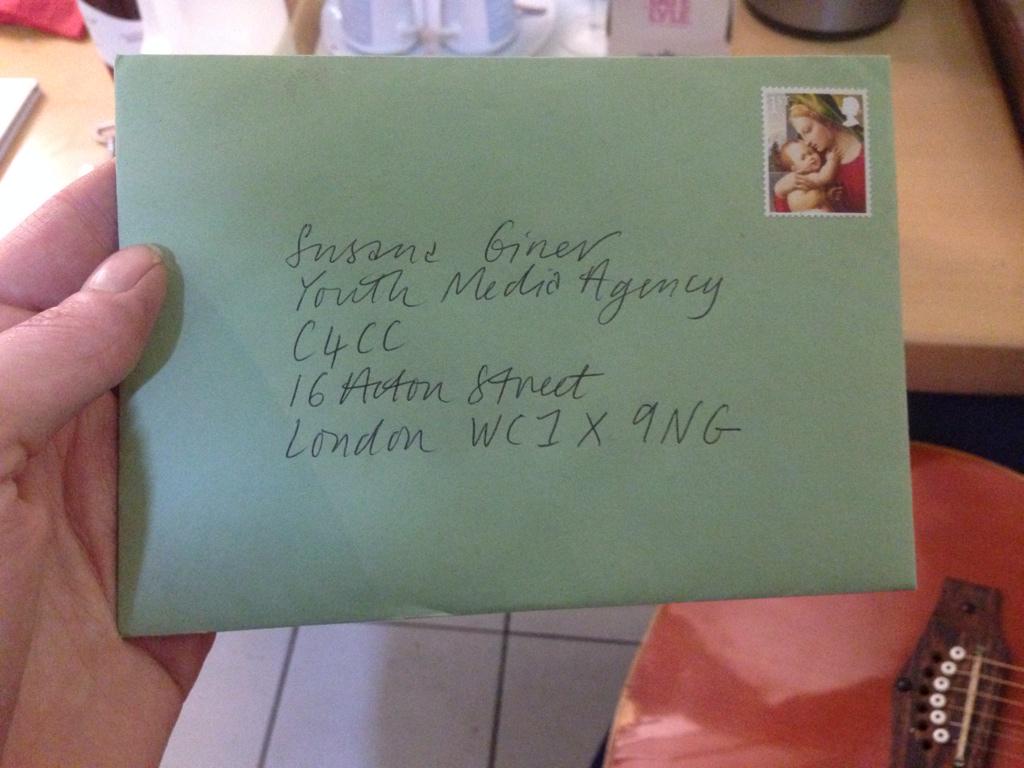 LYLE
1st
Susana Giner
Youth Media Agency
C4CC
16 Acton Street
London WC1X 9NG